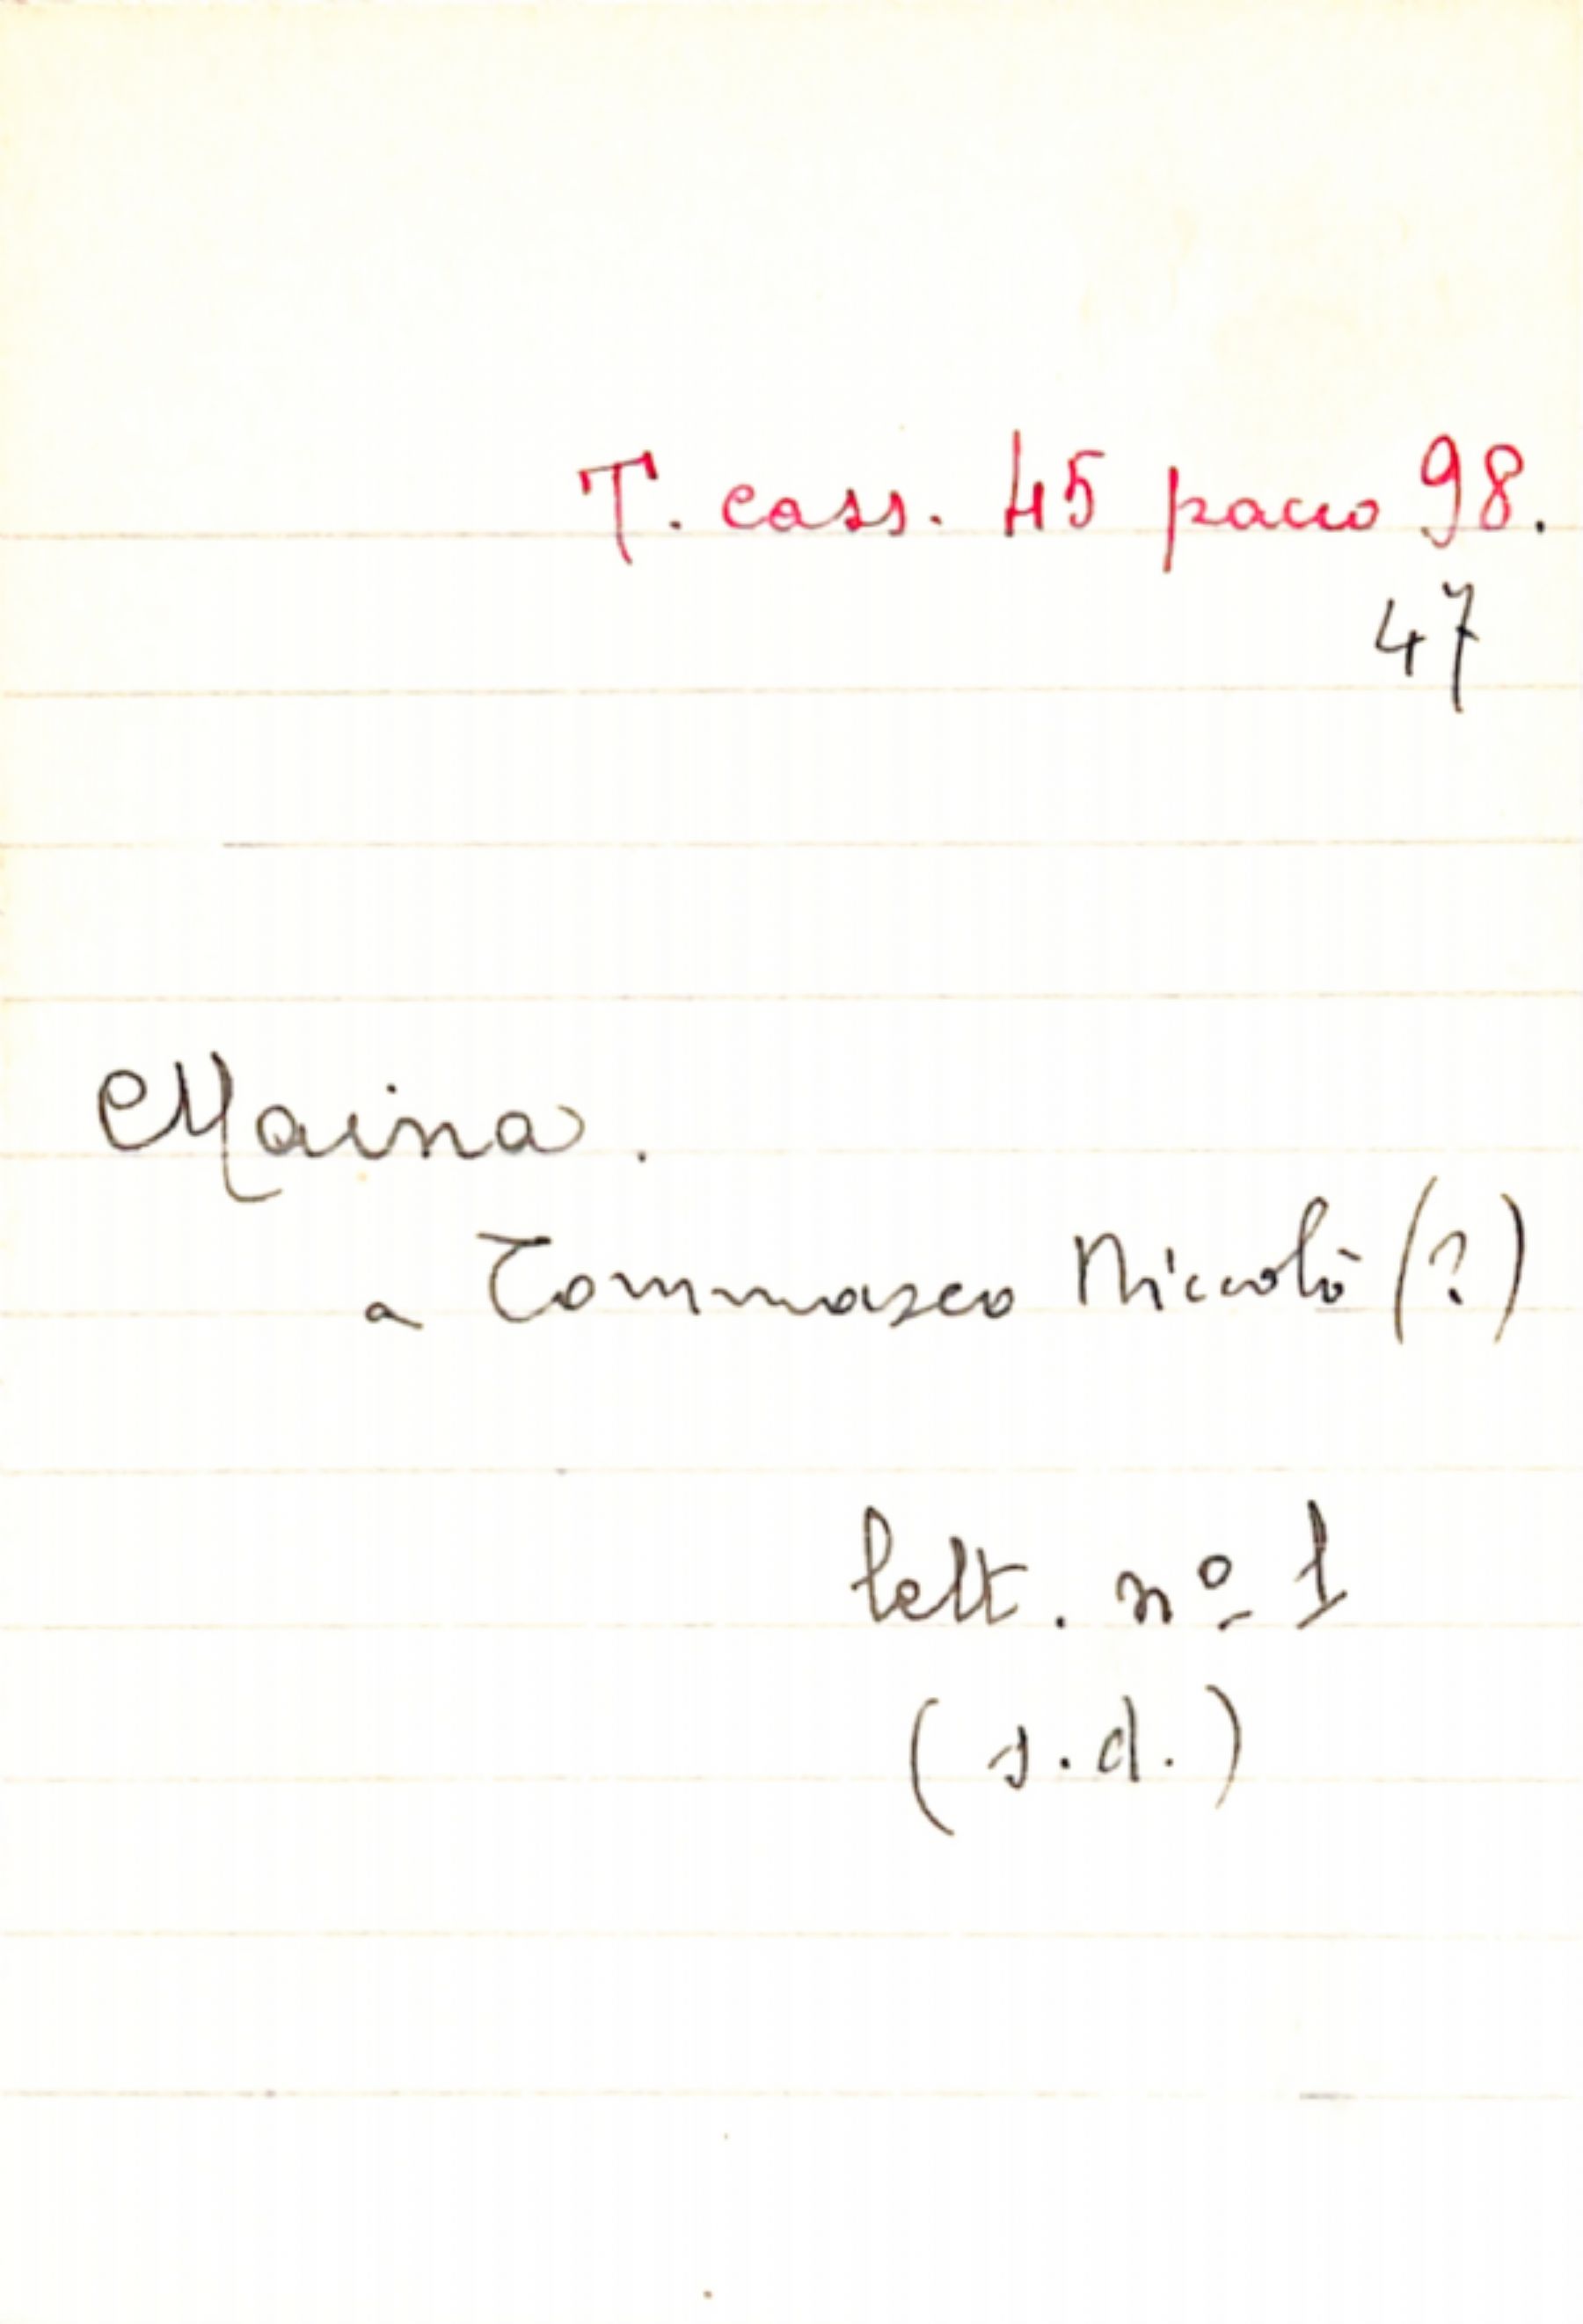 T. cass. 45 pacco 98.
47
Maina.
a Tommaseo Niccolò (?)
lett. nº 1
(s.d.)